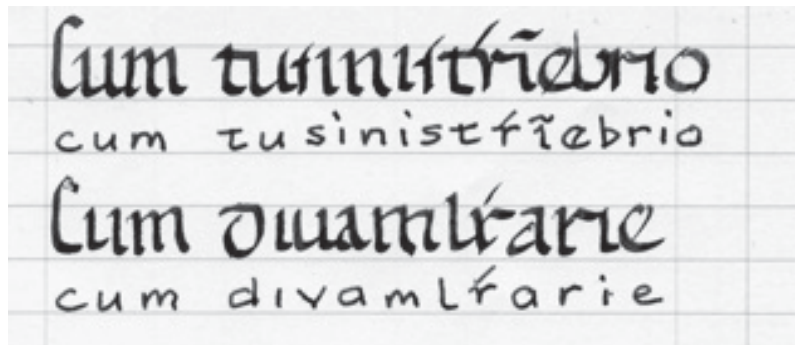 Cum tusinistrĩebrio
cum tusinistrĩebrio
Cum divamlrarie
cum divamlrarie